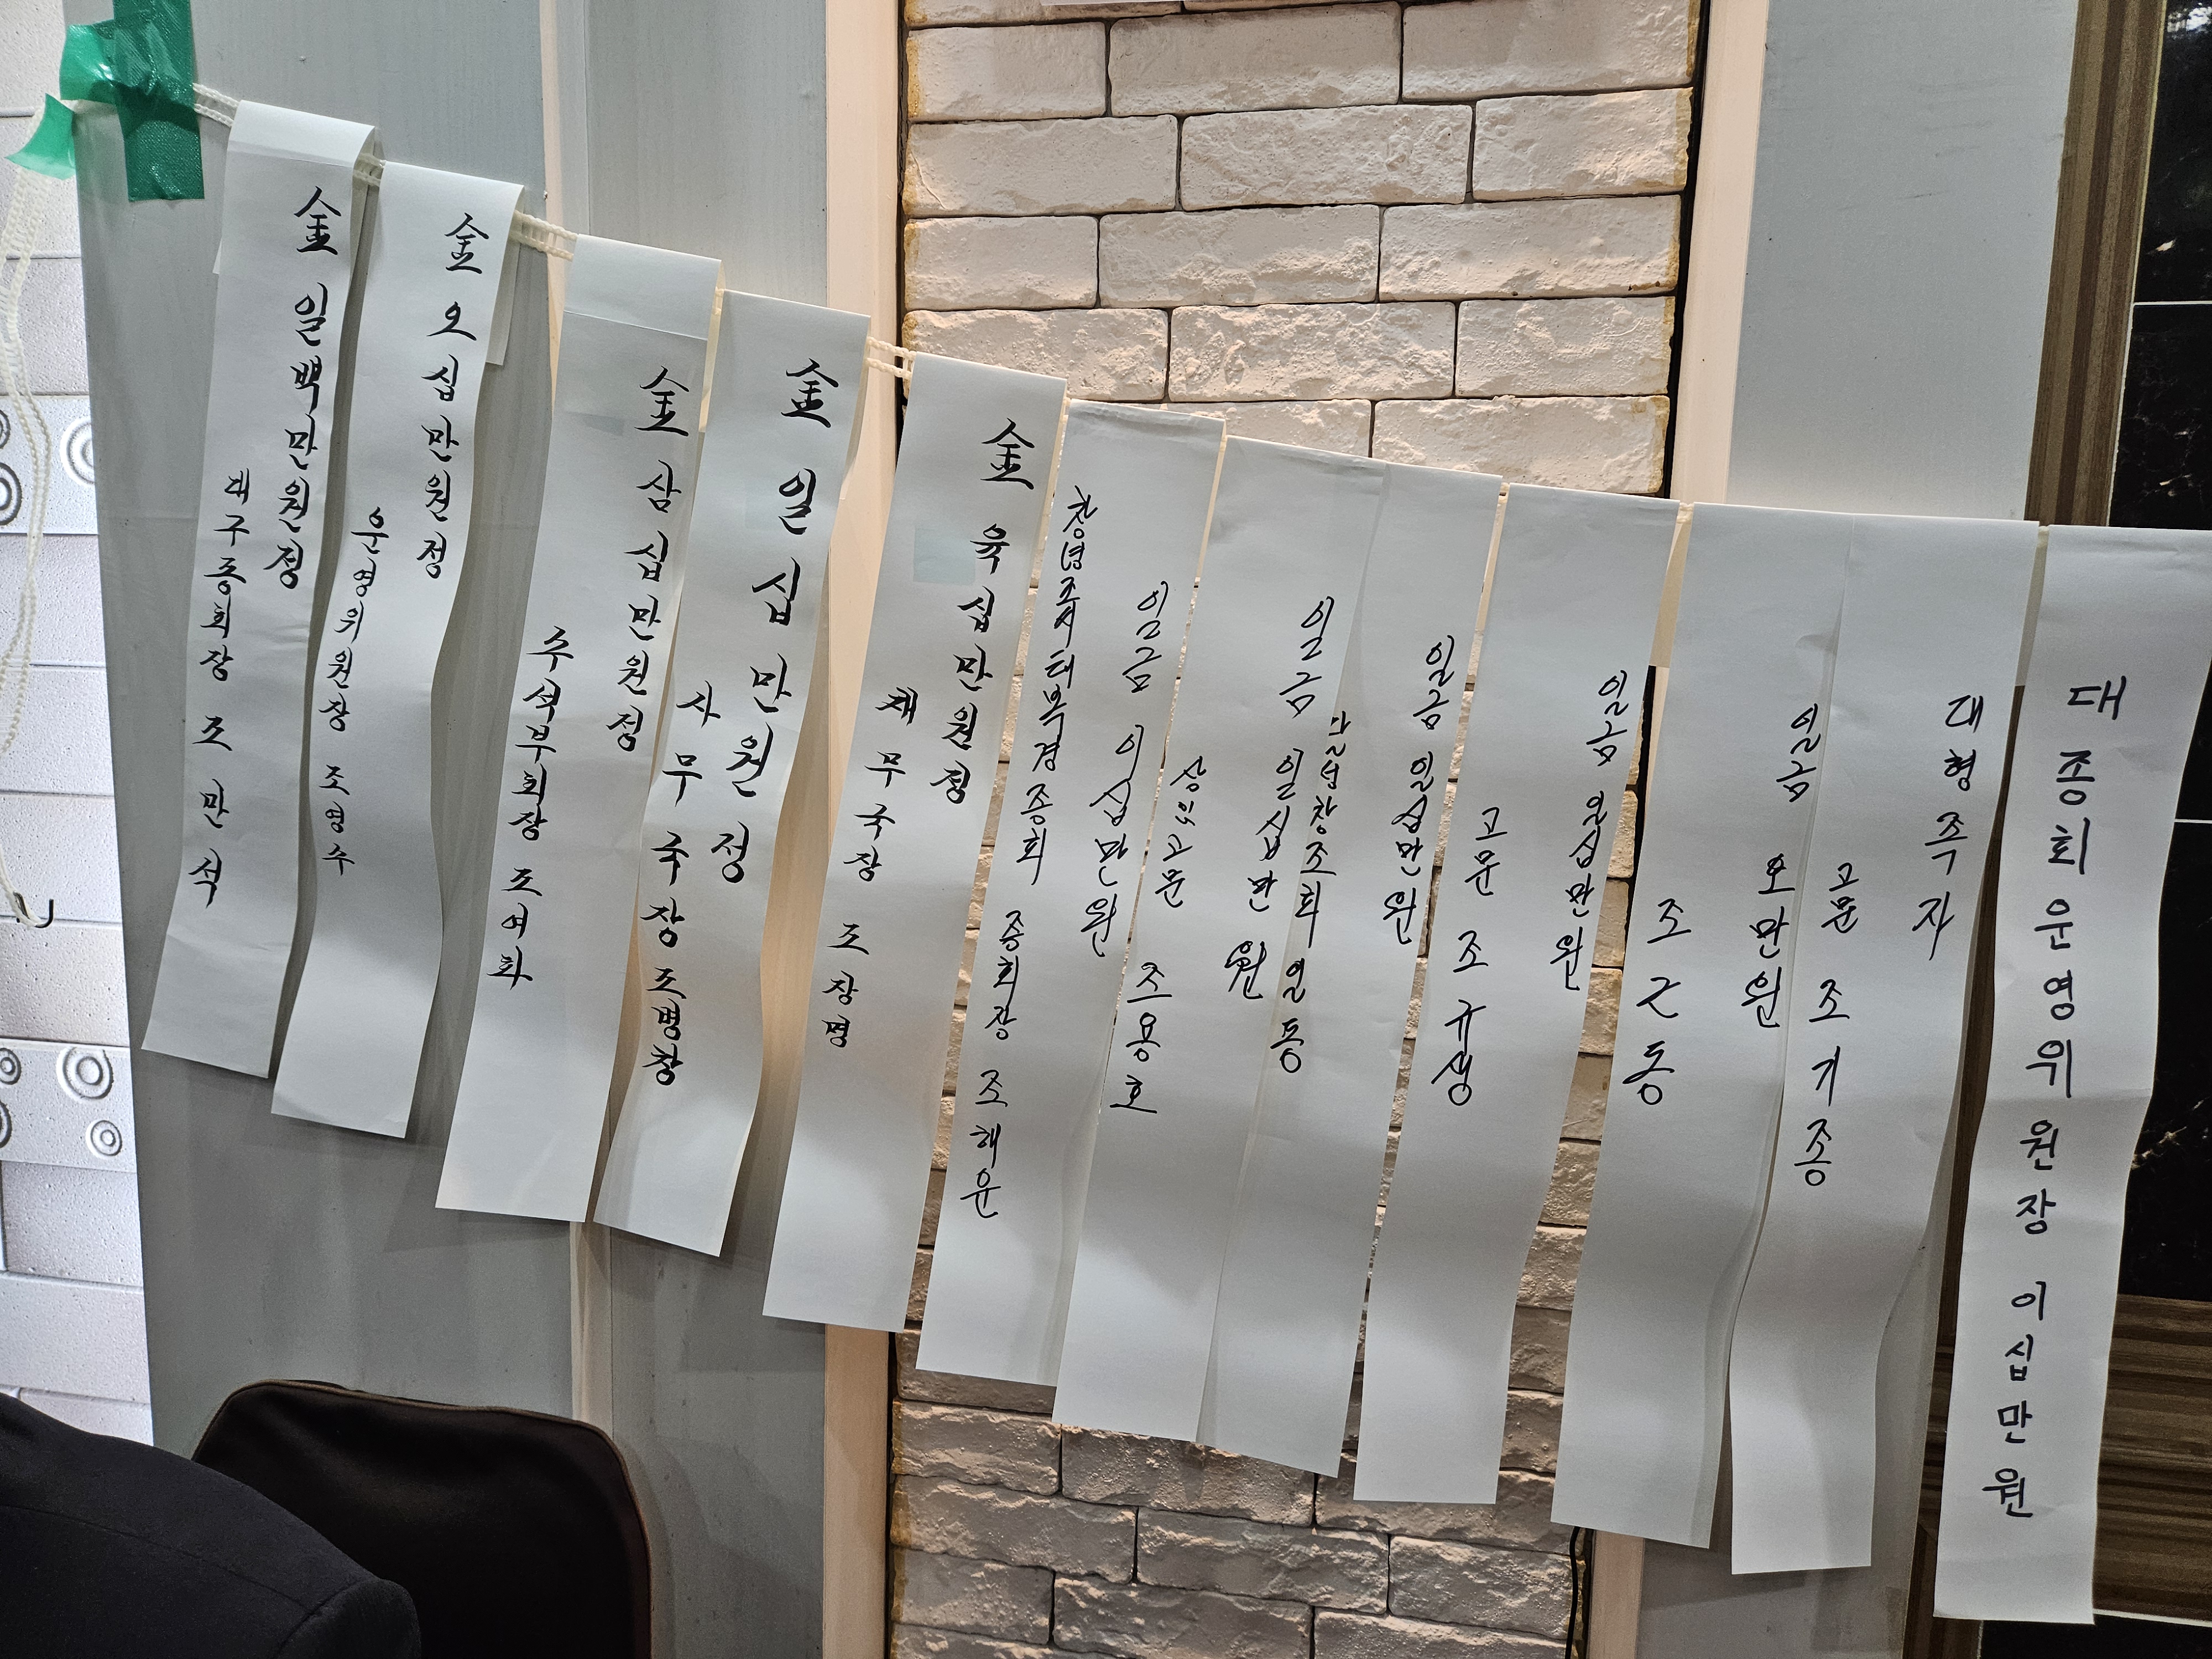 金 일백만원정
대구종회장 조만석
金 오십만원정
운영위원장 조영수
金 삼십만원정
수석부회장 조여화
金 일십만원정
사무국장 조병창
金 육십만원정
재무국장 조장명
일금 이십만원
창녕조씨 대북경종회 종회장 조해윤
일금 일십만원
상임고문 조용호
일금 일십만원
달성창조회 일동
일금 일십만원
고문 조규생
일금 오만원
조근동
대형 족자
고문 조기종
대종회 운영위원장 이십만원